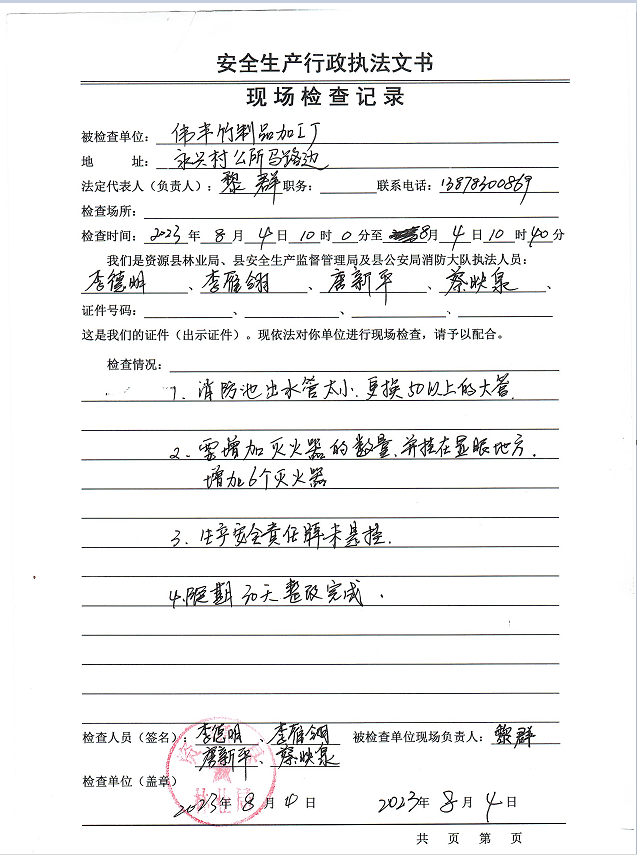 安全生产行政执法文书
现场检查记录
被检查单位：伟丰竹制品加工厂
地 址：永兴村公所马路边
法定代表人（负责人）：黎群 职务： 联系电话：13878300869
检查场所：
检查时间：2023年8月4日10时0分至8月4日10时40分
我们是资源县林业局、县安全生产监督管理局及县公安局消防大队执法人员：
李德明、李雁翎、唐新平、蔡映泉、
证件号码：、、、、
这是我们的证件（出示证件）。现依法对你单位进行现场检查，请予以配合。
检查情况：
1、消防池出水管太小.更换50以上的大管.
2、需增加灭火器的数量.并挂在显眼地方.
增加6个灭火器
3、生产安全责任牌未悬挂.
4.限期30天整改完成.
检查人员（签名）：李德明、李雁翎 被检查单位现场负责人：黎群
唐新平、蔡映泉
检查单位（盖章）
林业局
2023年8月4日 2023年8月4日
共 页 第 页